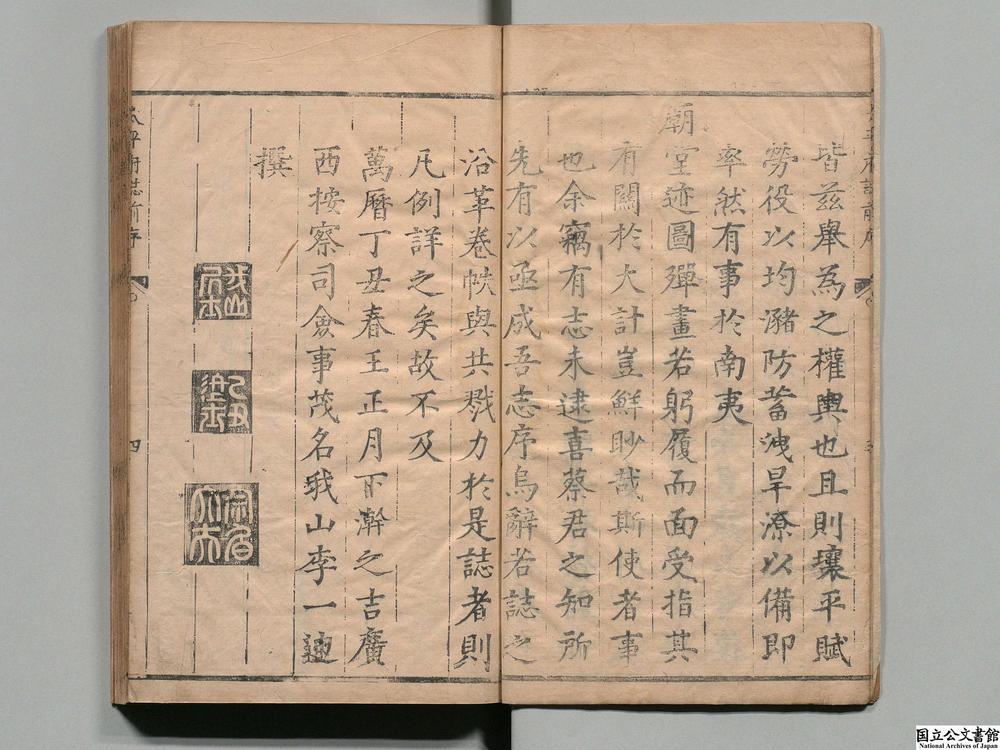 皆茲舉為之權輿也且則壤平賦
勞役以均瀦防蓄洩旱潦以備即
率然有事於南夷
廟堂迹圖彈畫若躬履而面受指其
有關於大計豈鮮眇哉斯使者事
也余竊有志未逮喜蔡君之知所
先有以亟成吾志序烏辭若誌之
沿革卷帙與共戮力於是誌者則
凡例詳之矣故不及
萬曆丁丑春王正月下澣之吉廣
西按察司僉事茂名我山李一迪
撰
太平府誌前序
四
国立公文書館
National Archives of Japan